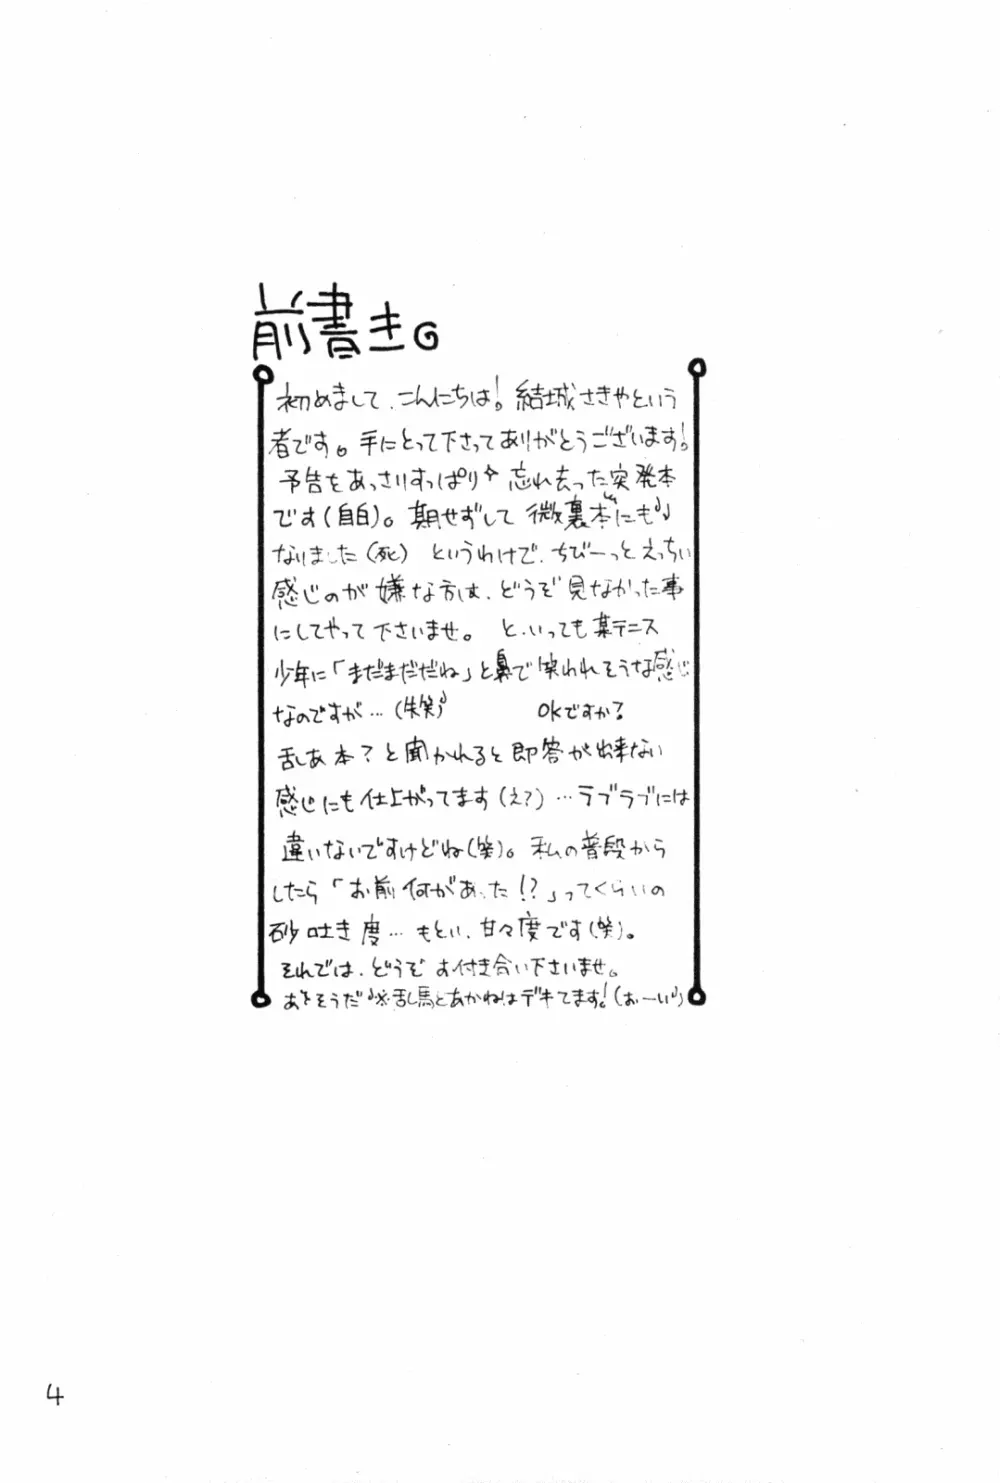 前書き。
初めまして、こんにちは!結城さきやという
者です。手にとって下さってありがとうございます!
予告をあっさりすっぱり忘れ去った突発本
です(自白)。期せずして微裏本にも
なりました(死) というわけで、ちびーっとえっちぃ
感じのが嫌な方は、どうぞ見なかった事
にしてやって下さいませ。 と、いっても某テニス
少年に「まだまだだね」と鼻で笑われそうな感じ
なのですが…(失笑) OKですか?
乱あ本?と聞かれると即答が出来ない
感じにも仕上がってます(え?)…ラブラブには
違いないですけどね(笑)。私の普段から
したら「お前何があった!?」ってくらいの
砂吐き度…もとい、甘々度です(笑)。
それでは、どうぞお付き合い下さいませ。
あとそうだ※乱馬とあかねはデキてます!(おーい)
4